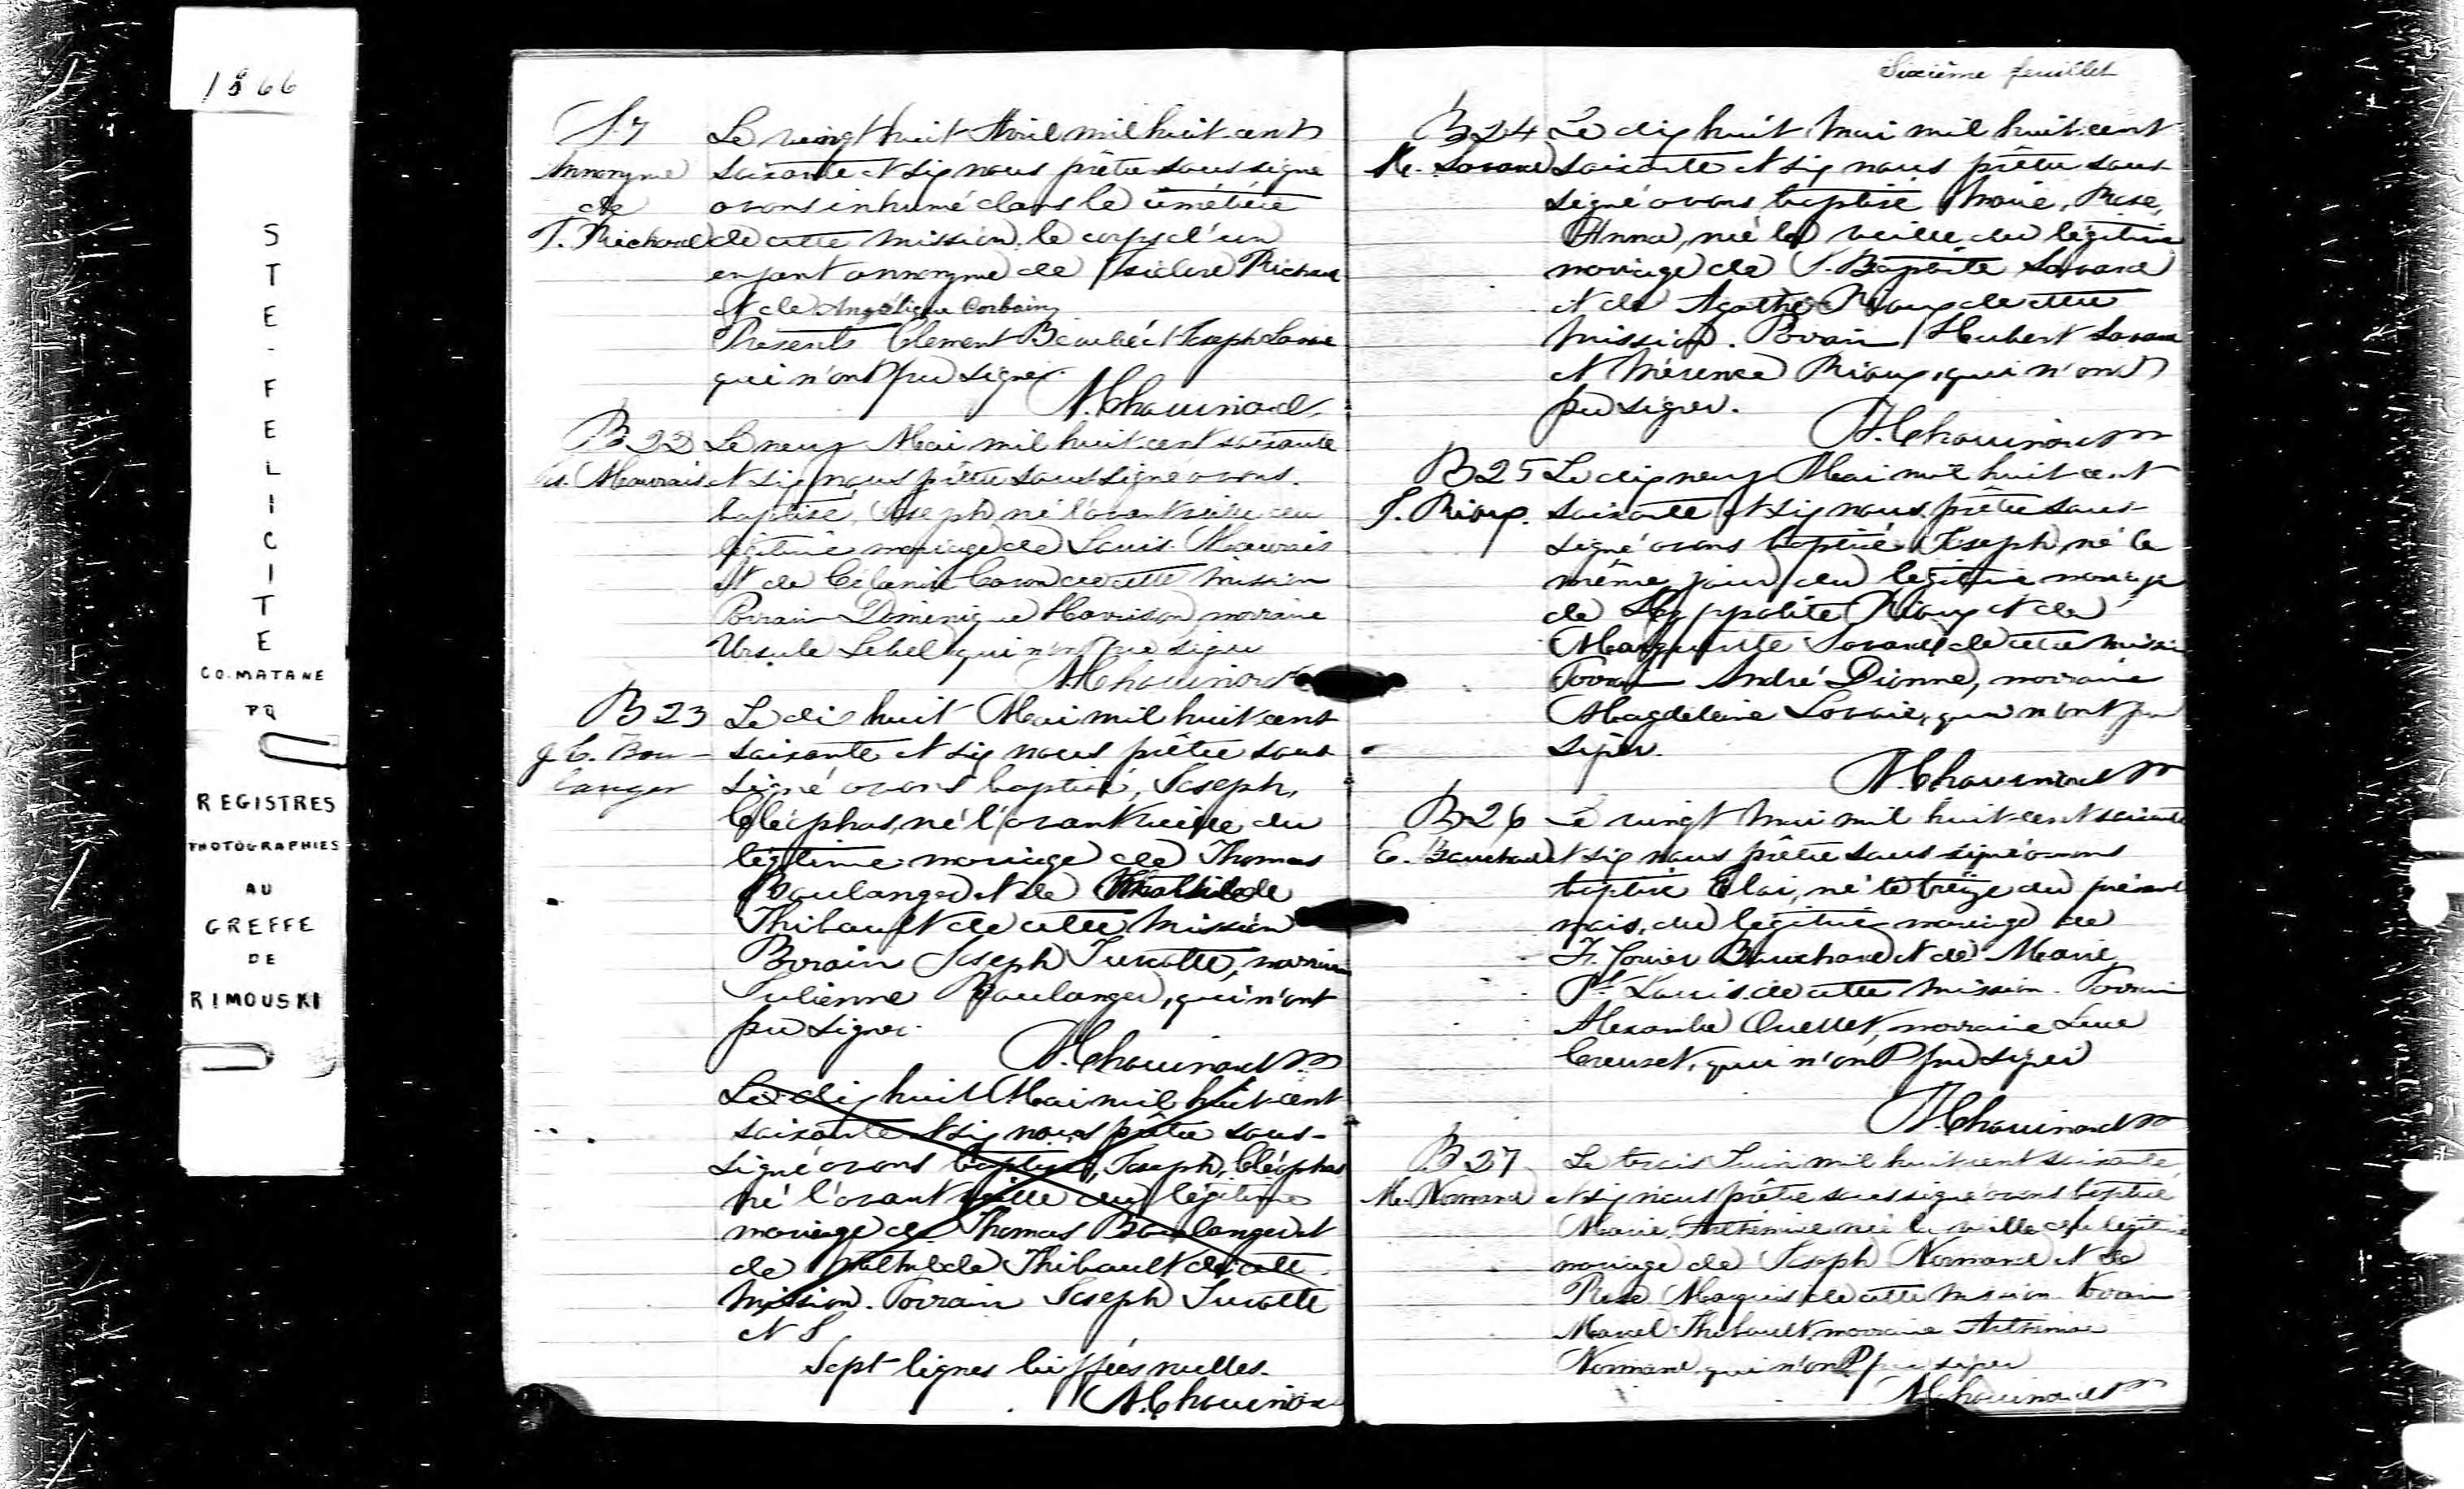 1866
STE-FELICITE
CO. MATANE
PQ
REGISTRES
PHOTOGRAPHIES
AU
GREFFE
DE
RIMOUSKI
S. 7
Annonyme
de
T. Richard
Le vingt huit Avril mil huit cent
soixante et six nous prêtre soussigné
avons inhumé dans le cimétière
de cette mission le corps d'un
enfant annonyme de Richard
et de Angélique Corbain
Présents Clement Beaubé et Joseph
qui n'ont pu signer.
N. Chouinard
B 22
Le neuf Mai mil huit cent soixante
Mauvais et six nous prêtre soussigné avons
baptisé, Joseph, né l'avant veille du
légitime mariage de Louis Mauvais
et de Célanie Caron de cette mission
Parrain Dominique Harrisson, marraine
Ursule Lebel qui n'ont pu signer
N. Chouinard
B 23
J. C. Bou-
langer
Le dix huit Mai mil huit cent
soixante et six nous prêtre sous
signé avons baptisé, Joseph,
Cléophas, né l'avant veille du
légitime mariage de Thomas
Boulanger et de Mathilde
Thibault de cette mission
Parrain Joseph Turcotte, marraine
Julienne Boulanger, qui n'ont
pu signer.
N. Chouinard ptre
Le dix huit Mai mil huit cent
soixante et six nous prêtre sous-
signé avons baptisé, Joseph, Cléophas
né l'avant veille du légitime
mariage de Thomas Boulanger et
de Mathilde Thibault de cette
mission. Parrain Joseph Turcotte
et J
Sept lignes biffées nulles.
N. Chouinard
Sixième feuillet
B 24
M. Savard
Le dix huit Mai mil huit cent
soixante et six nous prêtre sous-
signé avons baptisé Marie, Rose,
Anna, né la veille du légitime
mariage de J. Baptiste Savard
et de Agathe Rioux de cette
mission. Parrain Hubert Savard
et Mérence Rioux, qui n'ont
pu signer.
N. Chouinard ptre
B 25
J. Rioux.
Le dix neuf Mai mil huit cent
soixante et six nous prêtre sous-
signé avons baptisé Joseph, né le
même jour du légitime mariage
de Hyppolite Rioux et de
Marguerite Savard de cette mission
Parrain André Dionne, marraine
Magdeleine Savard, qui n'ont pu
signer.
N. Chouinard ptre
B 26
E. Bouchard
Le vingt Mai mil huit cent soixante
et six nous prêtre soussigné avons
baptisé Eloi, né le treize du présent
mois, du légitime mariage de
Fr. Xavier Bouchard et de Marie
St. Louis de cette mission. Parrain
Alexandre Ouellet, marraine Luce
qui n'ont pu signer
N. Chouinard ptre
B 27
M. Normand
Le trois Juin mil huit cent soixante
et six nous prêtre soussigné avons baptisé
Marie Arthémise née la veille du légitime
mariage de Joseph Normand et de
Rose Marquis de cette mission. Parrain
Marcel Thibault, marraine Arthémise
Normand qui n'ont pu signer
N. Chouinard ptre